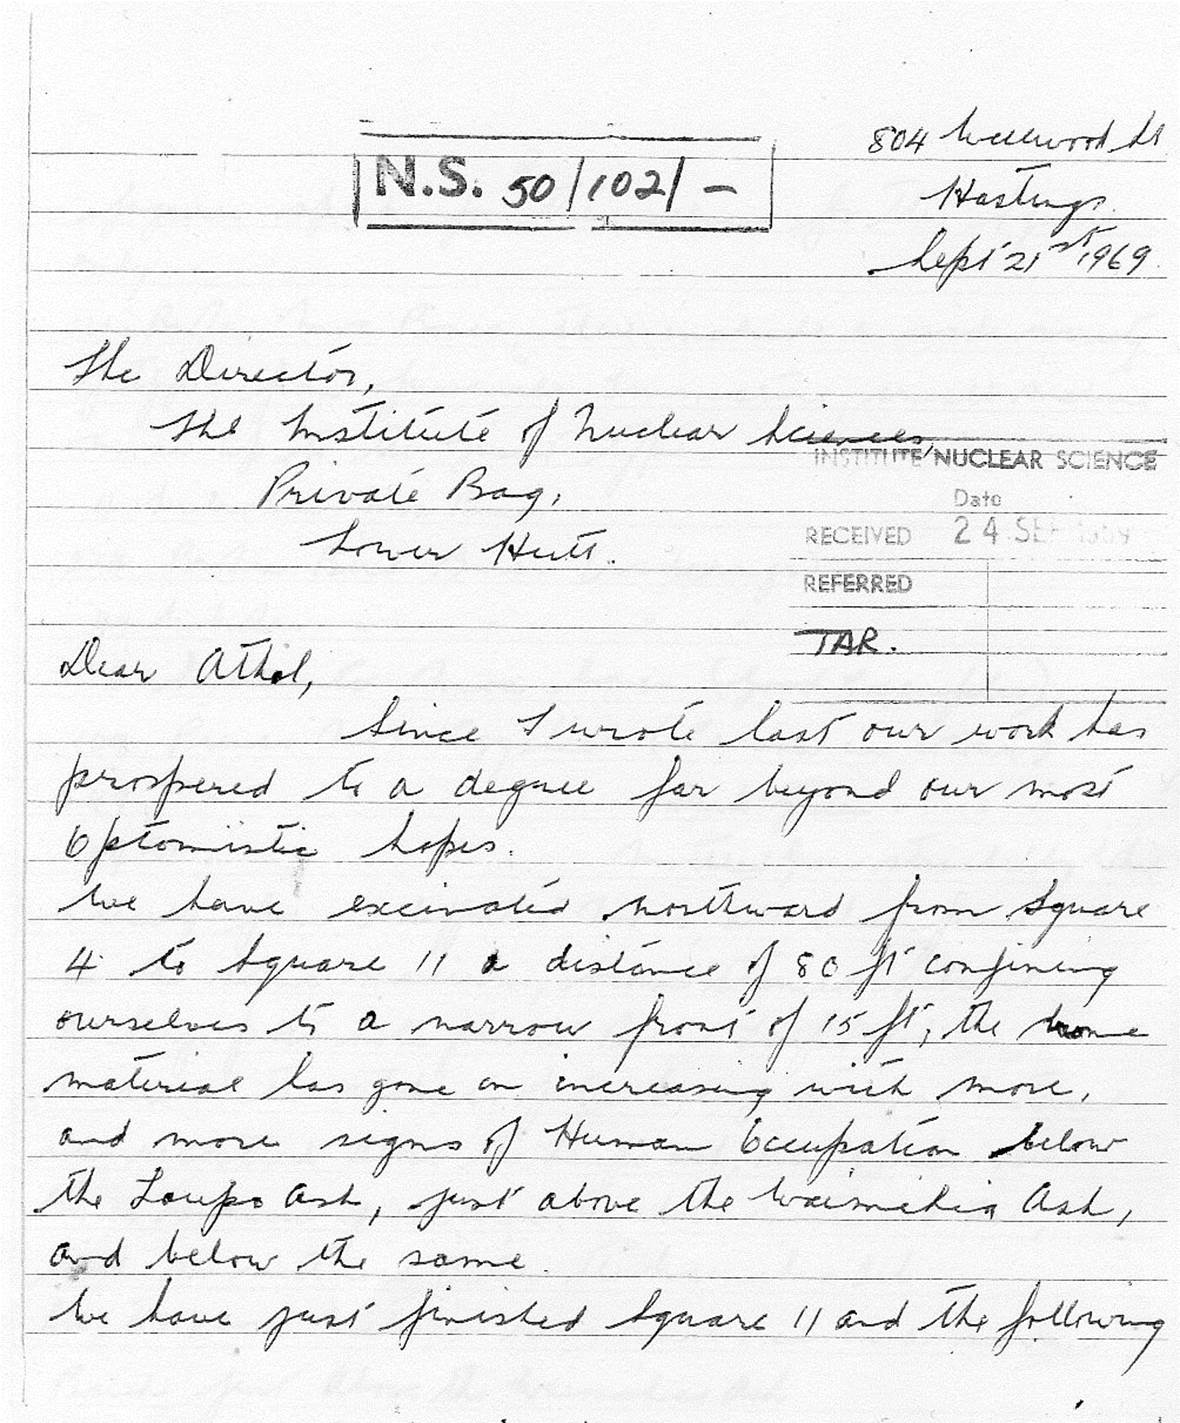 804 Wellwood St
Hastings.
Sept 21st 1969.
N.S. 50/102/-
The Director,
The Institute of Nuclear Sciences,
Private Bag,
Lower Hutt.
INSTITUTE NUCLEAR SCIENCE
Date
RECEIVED 24 SEP 1969
REFERRED
TAR.
Dear Athol,
Since I wrote last our work has
prospered to a degree far beyond our most
Optomistic hopes.
We have excivated northward from Square
4 to Square 11 a distance of 80 ft confining
ourselves to a narrow front of 15 ft, the
material has gone on increasing with more,
and more signs of Human Occupation below
the Taupo Ash, just above the Waimihia Ash,
and below the same.
We have just finished Square 11 and the following